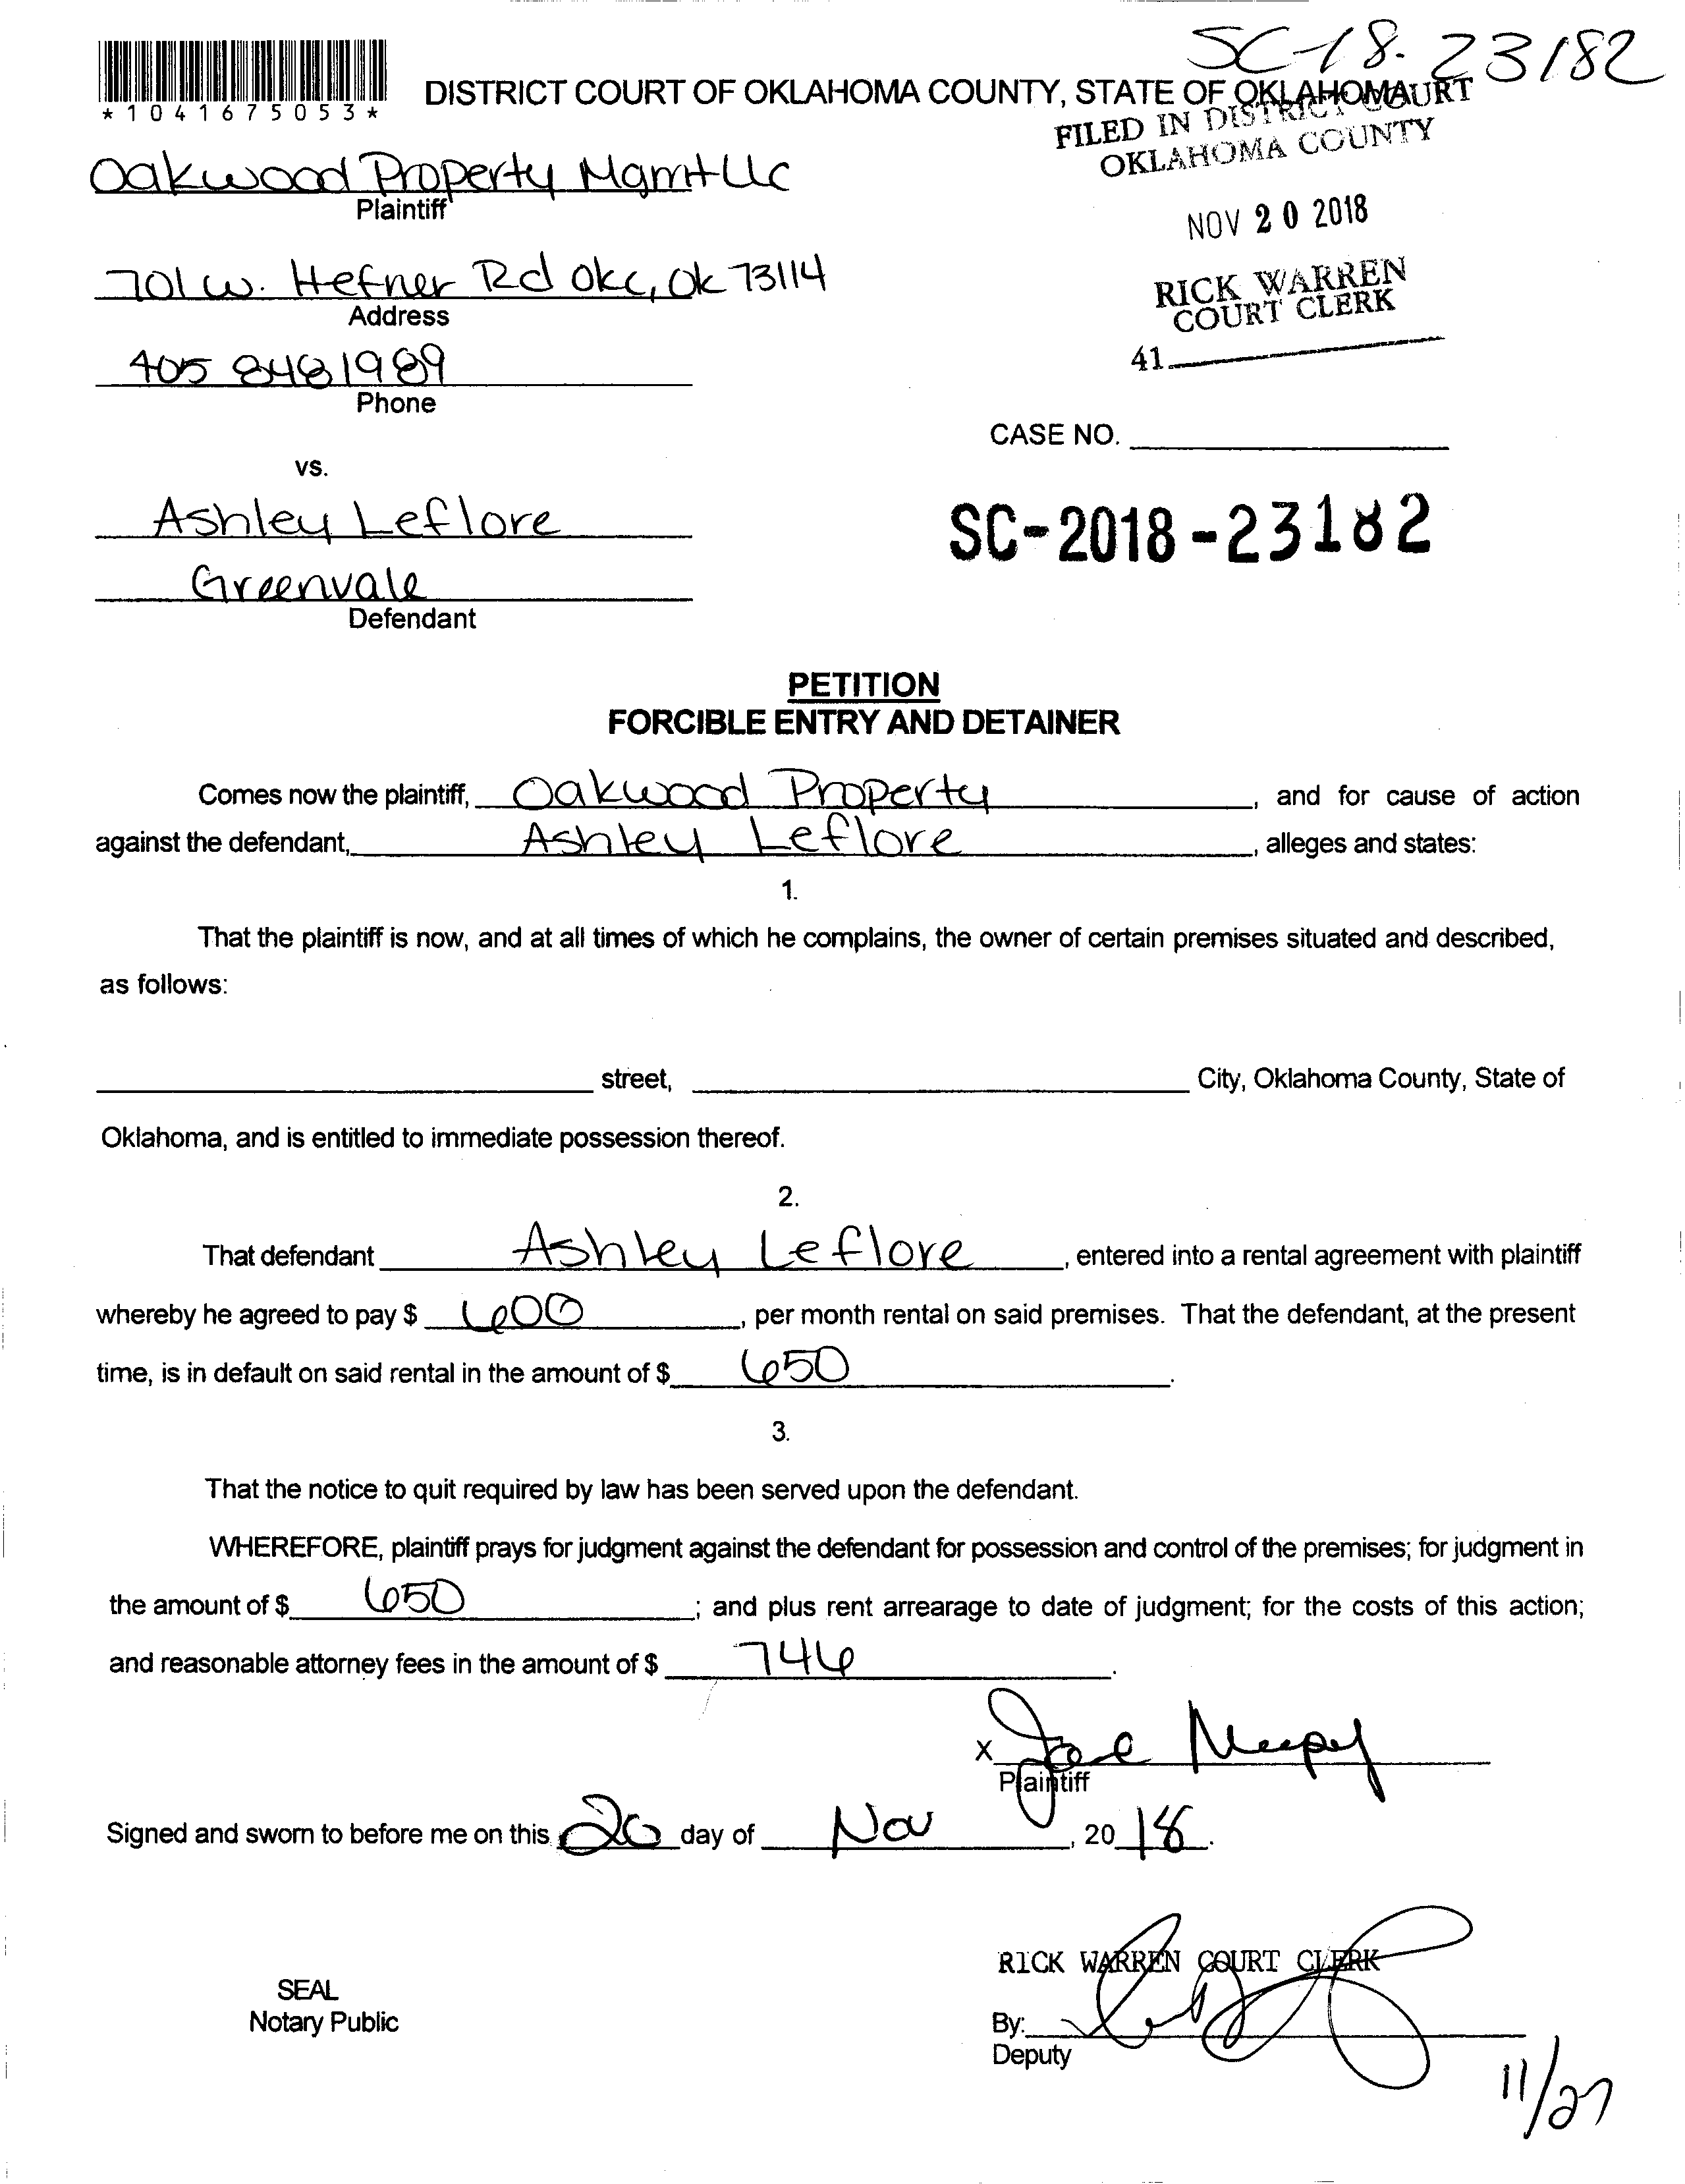 SC-18-23182
*1041675053*
DISTRICT COURT OF OKLAHOMA COUNTY, STATE OF OKLAHOMA
FILED IN DISTRICT COURT
OKLAHOMA COUNTY
Oakwood Property Mgmt LLC
Plaintiff
NOV 20 2018
701 W. Hefner Rd Okc, Ok 73114
Address
RICK WARREN
COURT CLERK
405 848 1989
Phone
41
CASE NO.
vs.
Ashley Leflore
SC-2018-23182
Greenvale
Defendant
PETITION
FORCIBLE ENTRY AND DETAINER
Comes now the plaintiff, Oakwood Property, and for cause of action
against the defendant, Ashley Leflore, alleges and states:
1.
That the plaintiff is now, and at all times of which he complains, the owner of certain premises situated and described,
as follows:
street, City, Oklahoma County, State of
Oklahoma, and is entitled to immediate possession thereof.
2.
That defendant Ashley Leflore, entered into a rental agreement with plaintiff
whereby he agreed to pay $ 600, per month rental on said premises. That the defendant, at the present
time, is in default on said rental in the amount of $ 650.
3.
That the notice to quit required by law has been served upon the defendant.
WHEREFORE, plaintiff prays for judgment against the defendant for possession and control of the premises; for judgment in
the amount of $ 650; and plus rent arrearage to date of judgment; for the costs of this action;
and reasonable attorney fees in the amount of $ 746.
X
Plaintiff
Signed and sworn to before me on this 20 day of Nov, 2018.
RICK WARREN COURT CLERK
SEAL
Notary Public
By:
Deputy
11/27